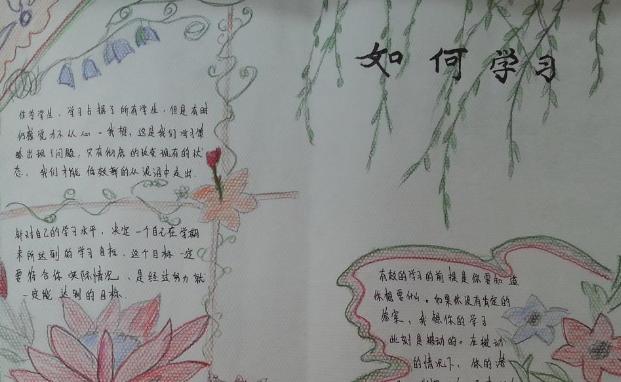 如何学习
作为学生,学习占据了所有学生,但是有时
们感觉力不从心。我想,这是我们的习惯
出现了问题,只有彻底的改变现有的状
态,我们才能从泥沼中走出
针对自己的学习水平,决定一个自己在学期
末所达到的学习目标,这个目标一定
要符合你实际情况,是经过努力就
一定能达到的目标
有效的学习的前提是你要知道
你想要什么,如果你没有肯定的
答案,我想你的学习
此刻是被动的。在被动
的情况下,你的